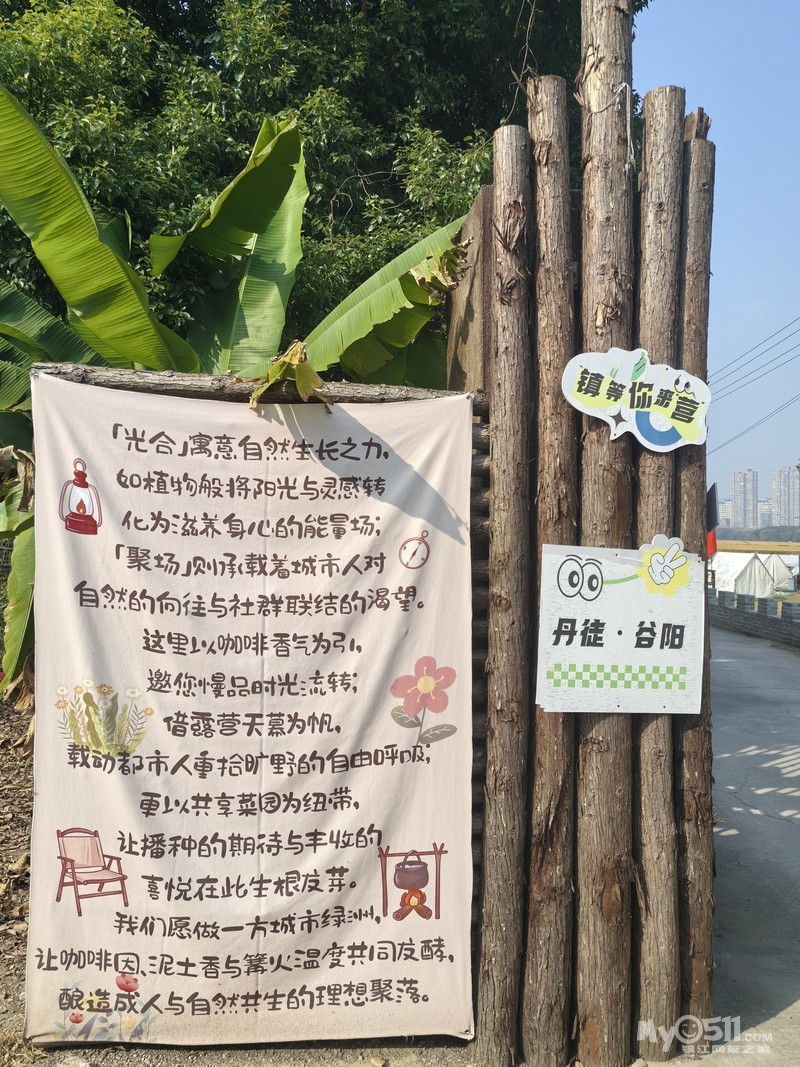 「光合」寓意自然生长之力,
如植物般将阳光与灵感转
化为滋养身心的能量场;
「聚场」则承载着城市人对
自然的向往与社群联结的渴望。
这里以咖啡香气为引,
邀您慢品时光流转;
借露营天幕为帆,
载动都市人重拾旷野的自由呼吸;
更以共享菜园为纽带,
让播种的期待与丰收的
喜悦在此生根发芽。
我们愿做一方城市绿洲,
让咖啡因、泥土香与篝火温度共同发酵,
酿造成人与自然共生的理想聚落。
镇等你来营
丹徒·谷阳
My0511.COM
镇江网友之家